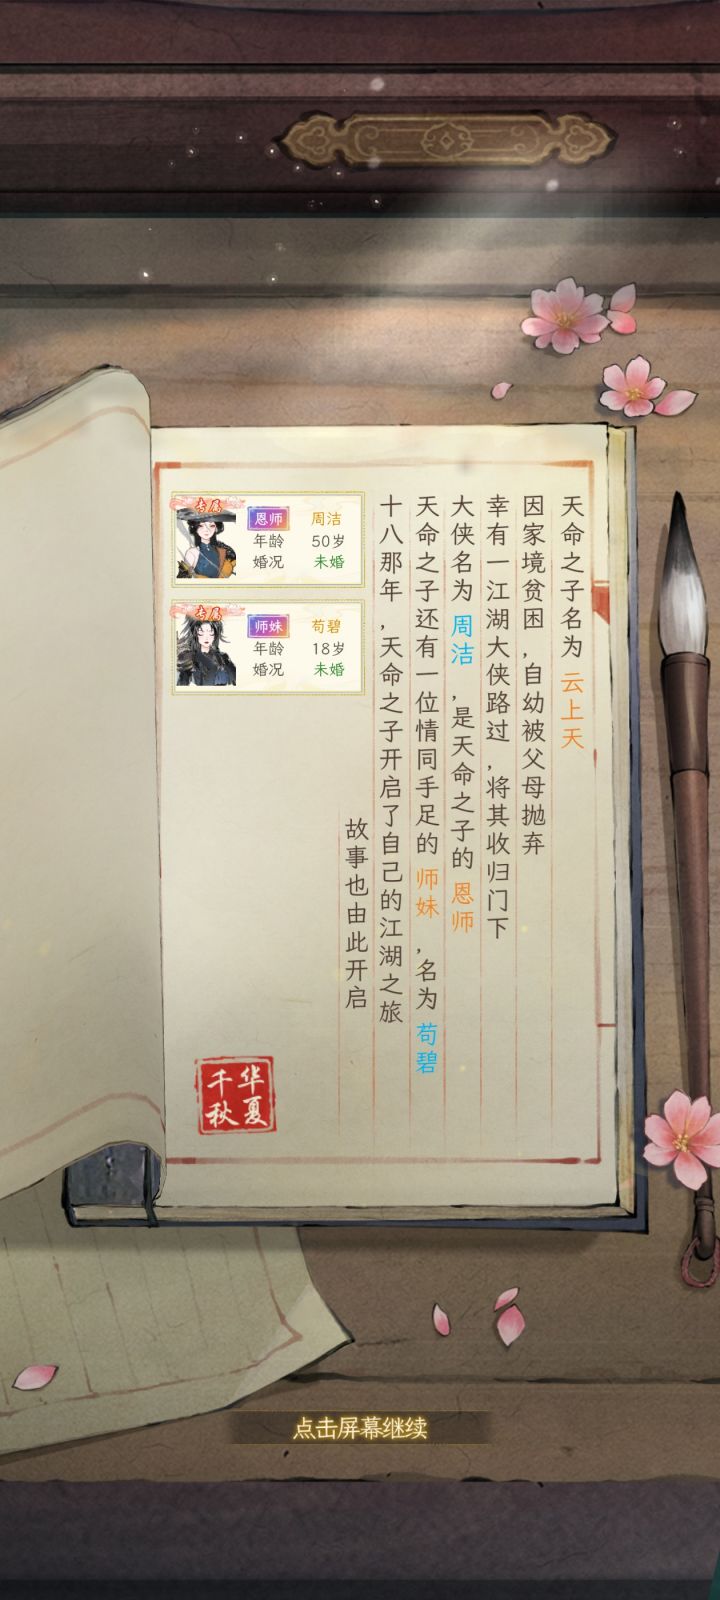 天命之子名为 云上天
因家境贫困，自幼被父母抛弃
幸有一江湖大侠路过，将其收归门下
大侠名为 周洁，是天命之子的 恩师
天命之子还有一位情同手足的 师妹，名为 苟碧
十八那年，天命之子开启了自己的江湖之旅
故事也由此开启
专属
恩师 周洁
年龄 50岁
婚况 未婚
专属
师妹 苟碧
年龄 18岁
婚况 未婚
华夏
千秋
点击屏幕继续